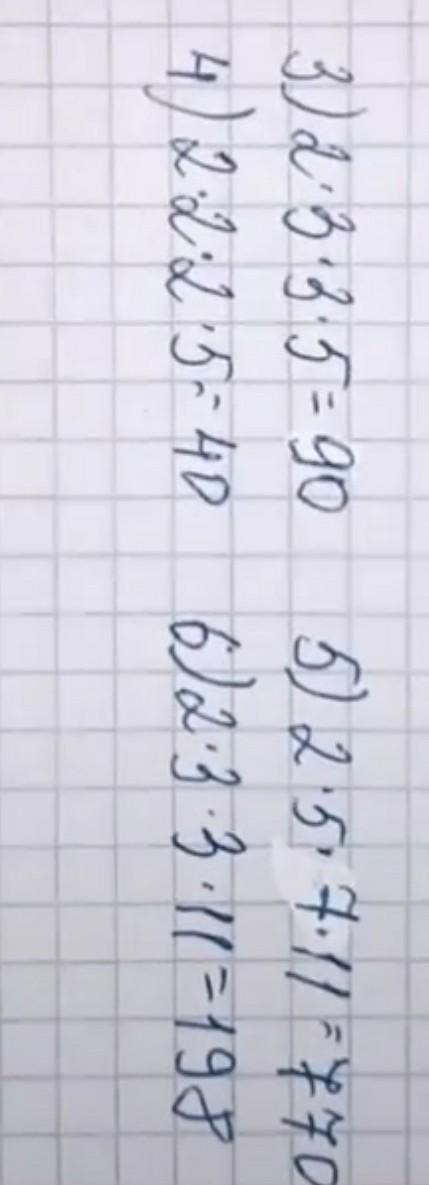 3) 2·3·3·5=90 5) 2·5·7·11=770
4) 2·2·2·5=40 6) 2·3·3·11=198